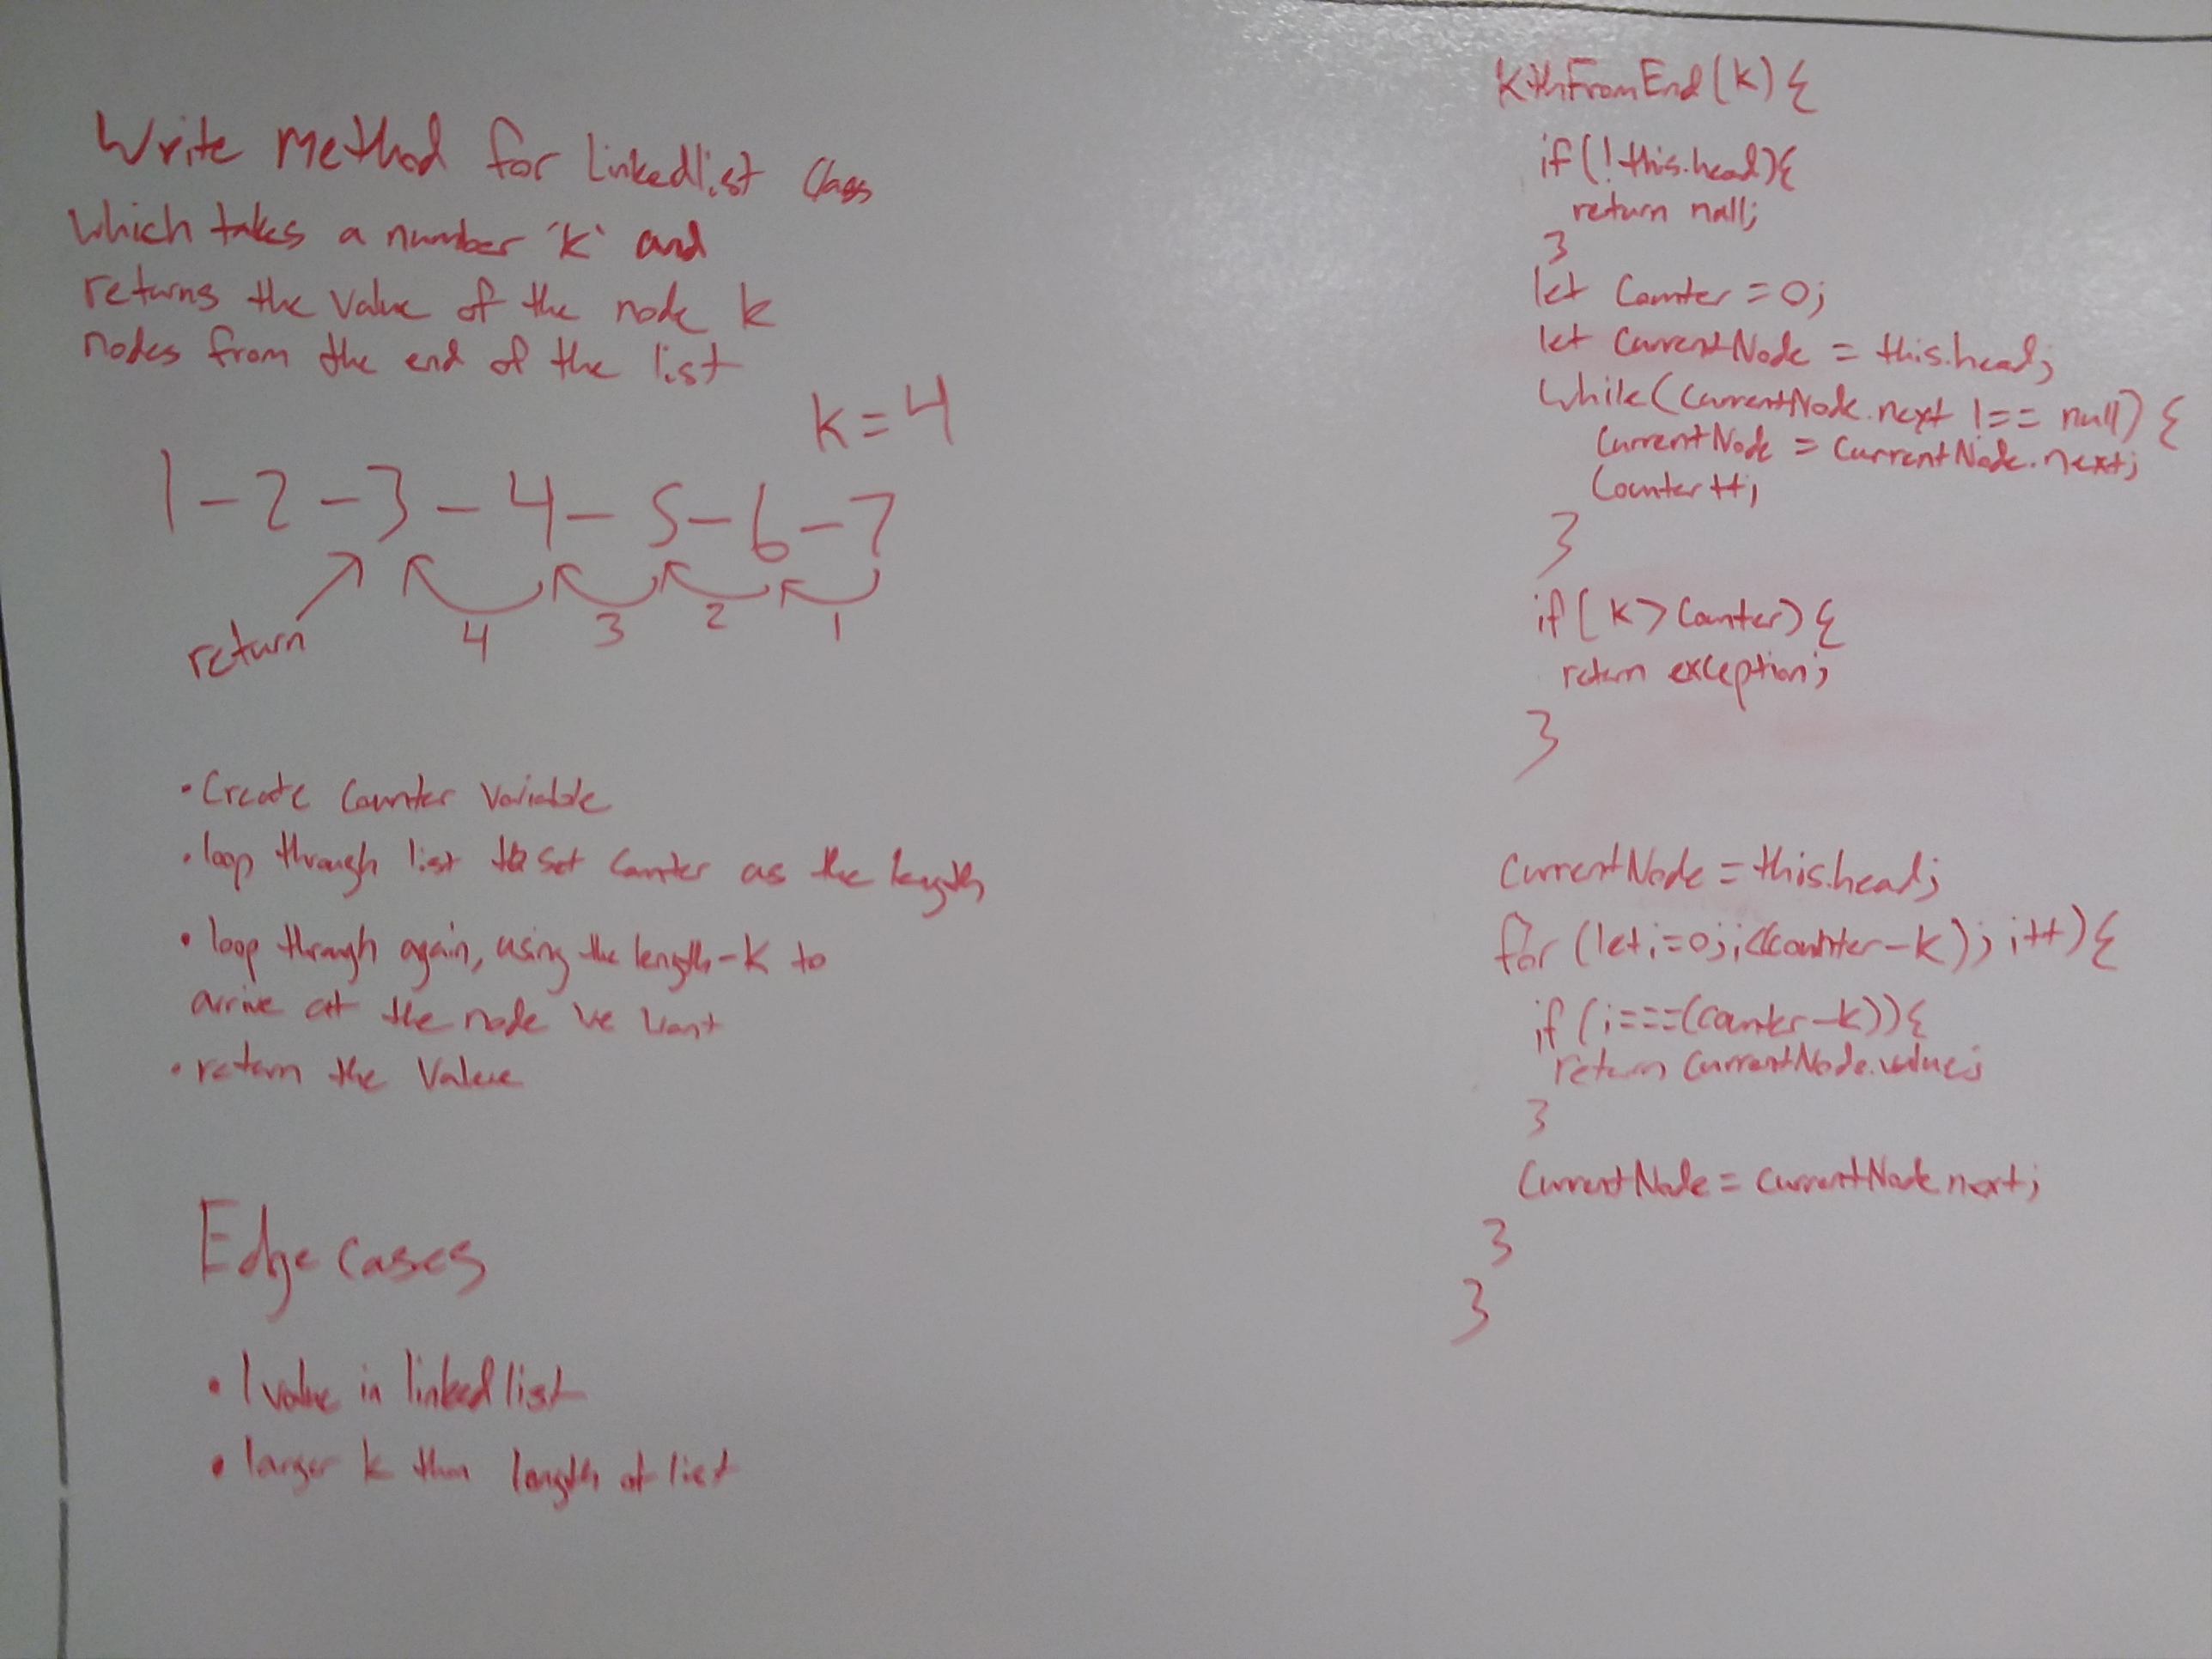 Write Method for Linkedlist Class
which takes a number 'k' and
returns the value of the node k
nodes from the end of the list
k=4
1-2-3-4-5-6-7
return 4 3 2 1
• Create Counter Variable
• loop through list to set Counter as the length
• loop through again, using the length-k to
arrive at the node we want
• return the Value
Edge cases
• 1 value in linked list
• larger k than length of list
KthFromEnd(k){
if(!this.head){
return null;
}
let Counter=0;
let CurrentNode = this.head;
while(CurrentNode.next !== null) {
CurrentNode = CurrentNode.next;
Counter++;
}
if(k>Counter){
return exception;
}
CurrentNode=this.head;
for(let i=0;i<(counter-k); i++){
if(i===(counter-k)){
return CurrentNode.value;
}
CurrentNode = CurrentNode.next;
}
}